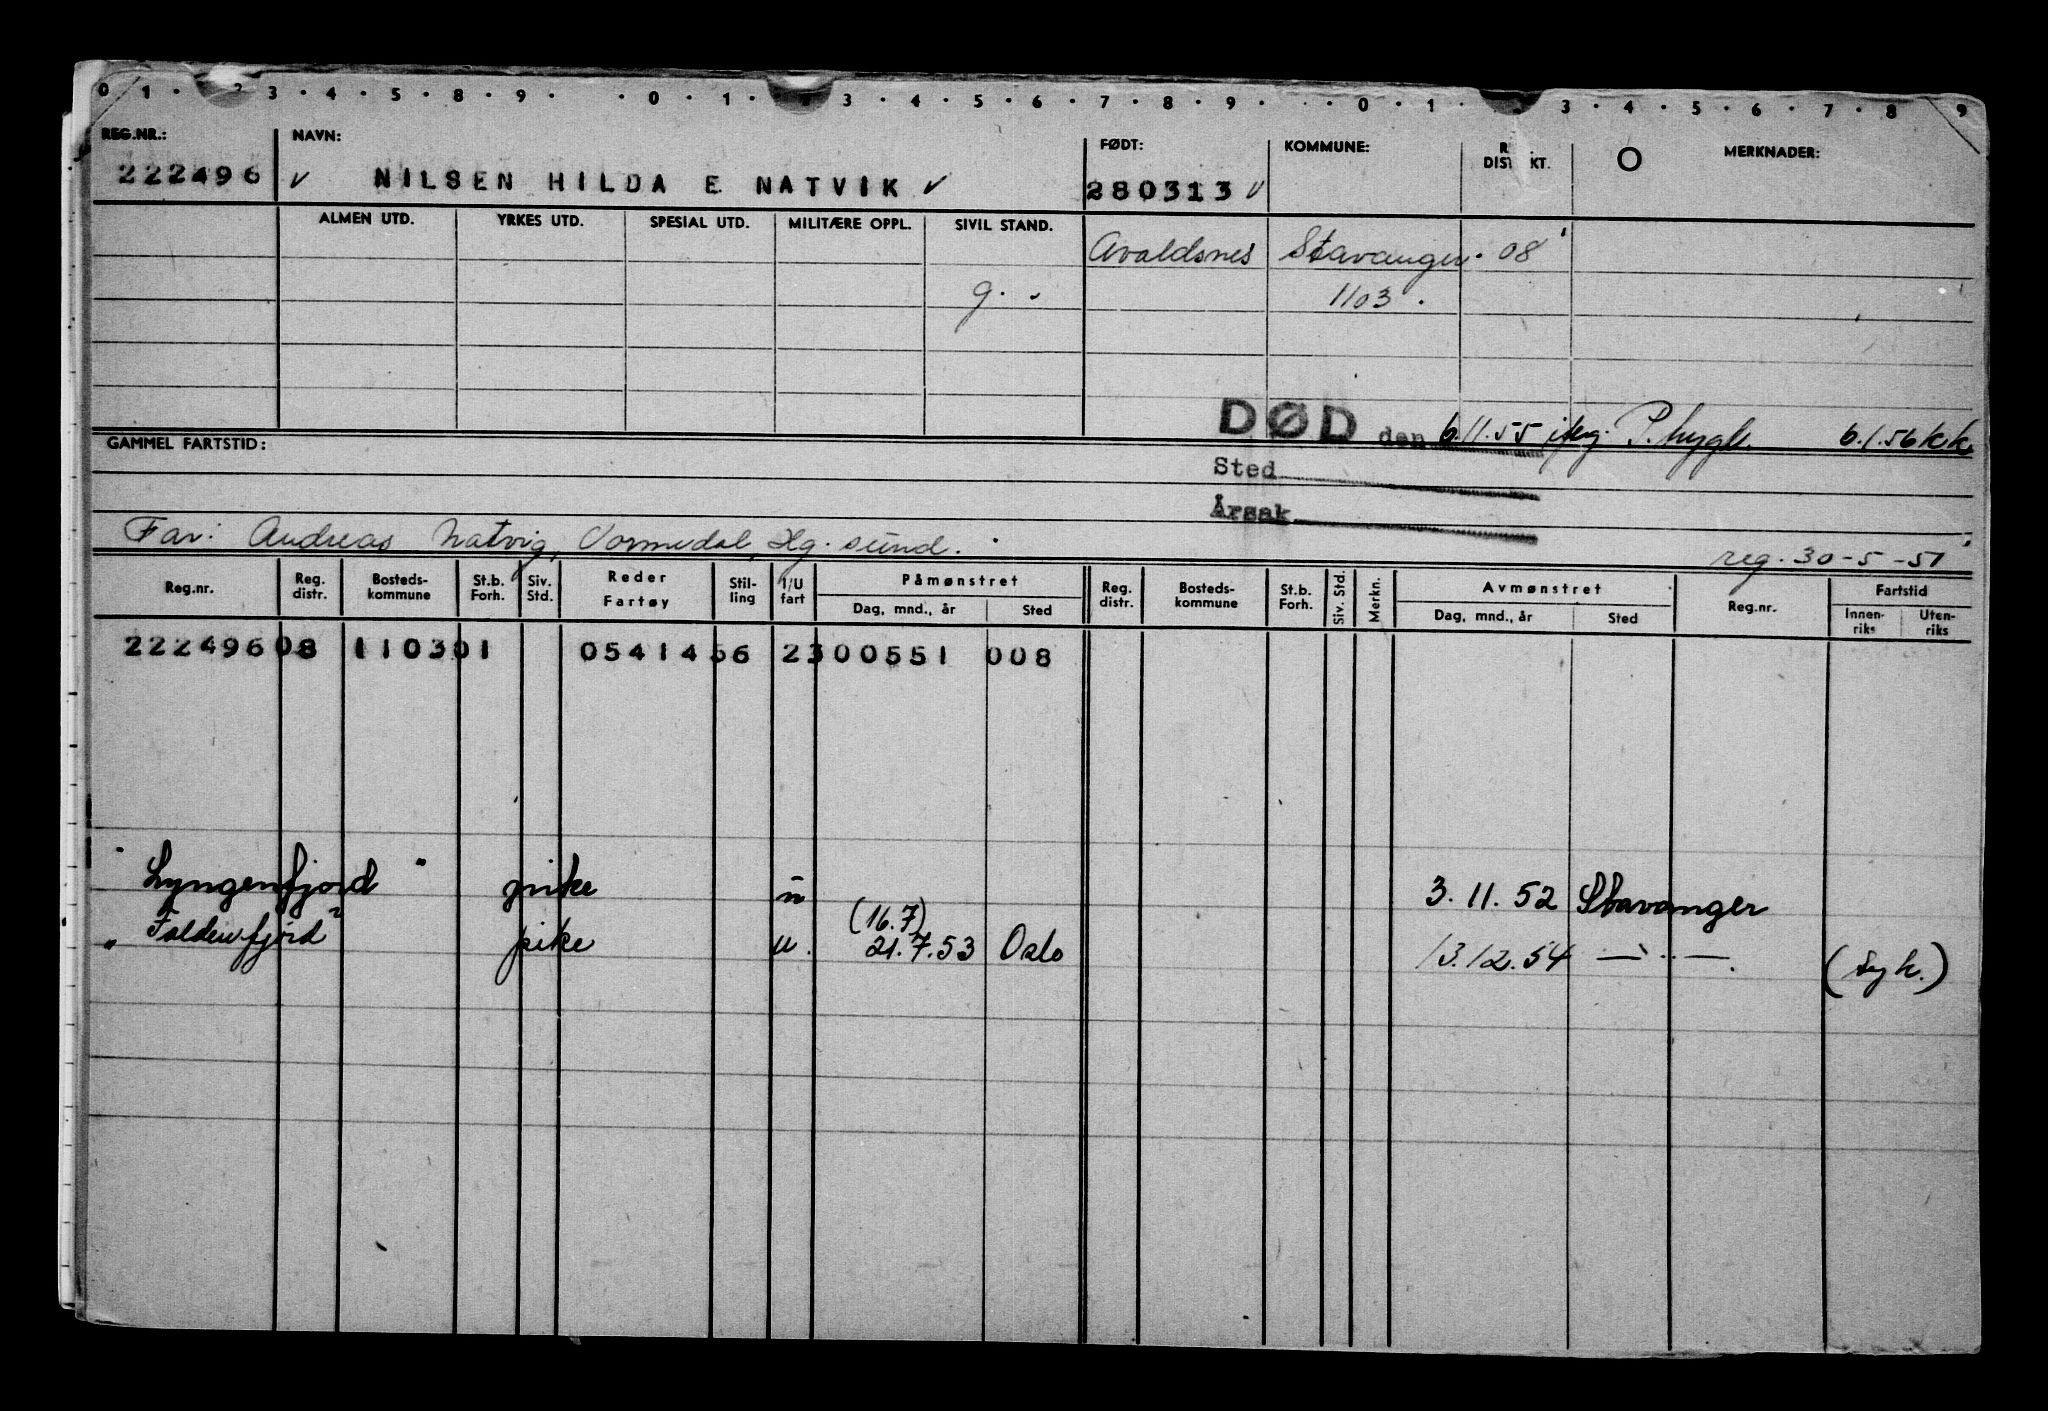 0 1 · 2 3 · 4 · 5 · 8 · 9 · · 0 · 1 · 3 · 4 · 5 · 6 · 7 · 8 · 9 · · 0 · 1 · 3 · 4 · 5 · 6 · 7 · 8 9
REG.NR.: NAVN: FØDT: KOMMUNE: R DIST KT. O MERKNADER:
222496 ✓ NILSEN HILDA E NATVIK ✓ 280313 ✓
ALMEN UTD. YRKES UTD. SPESIAL UTD. MILITÆRE OPPL. SIVIL STAND.
Avaldsnes Stavanger. 08
g. 1103.
DØD den 6.11.55 P. 6.1.56 k.k.
GAMMEL FARTSTID:
Sted
Årsak
Far: Andreas Natvig, Vormedal, Hg. sund.
reg. 30-5-51
Reg.nr. Reg. distr. Bosteds-kommune St.b. Forh. Siv. Std. Reder Fartøy Stil-ling I/U fart Påmønstret Reg. distr. Bosteds-kommune St.b. Forh. Siv. Std. Merkn. Avmønstret Reg.nr. Fartstid
Dag, mnd., år Sted Dag, mnd., år Sted Innen-riks Uten-riks
222496 08 110301 0541456 2300551 008
"Lyngenfjord" pike u 3.11.52 Stavanger
(16.7)
"Foldenfjord" pike u. 21.7.53 Oslo 13.12.54 — " — (syk.)